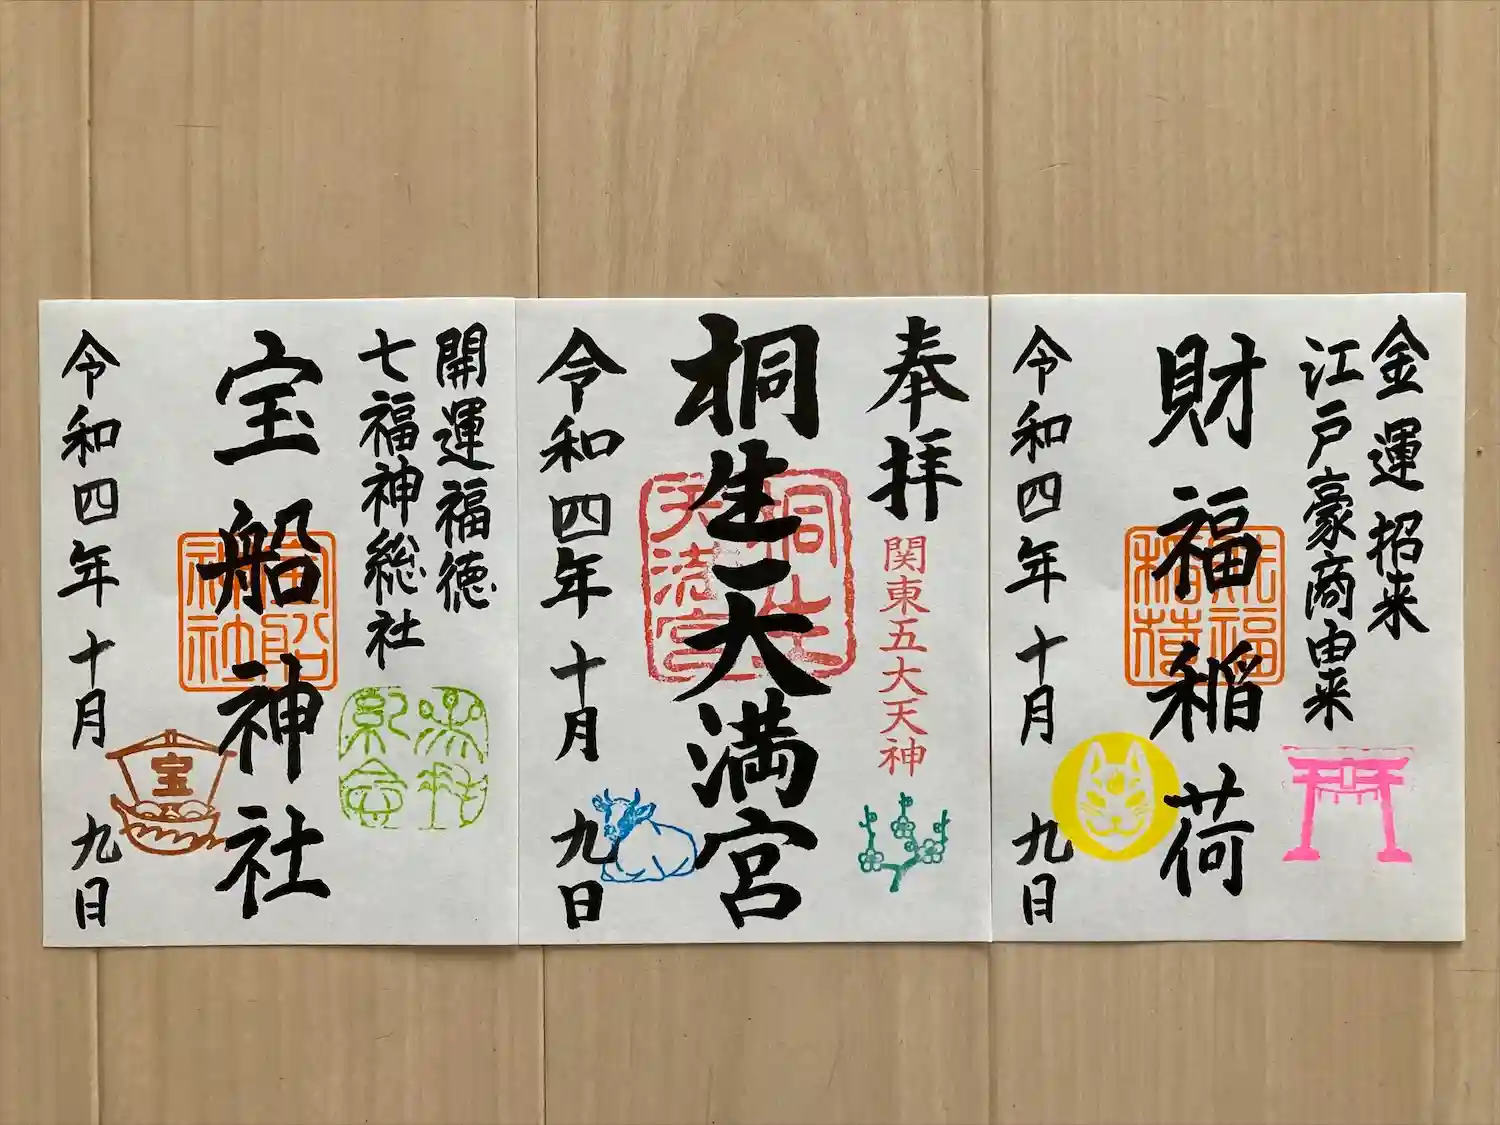 開運福徳
七福神総社
宝船神社
宝船
神社
宝
令和四年十月九日
奉拝
関東五大天神
桐生天満宮
桐生
天満宮
令和四年十月九日
金運招来
江戸豪商由来
財福稲荷
財福
稲荷
令和四年十月九日